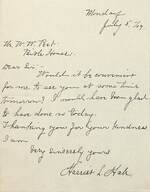 Monday
July 5, '09.
Mr. W. W. Post
Dear Sir:-
Would it be convenient
for me to see you at some time
tomorrow? I would have been glad
to have done so today.
Thanking you for your kindness
I am
Very sincerely yours
Harriet L.